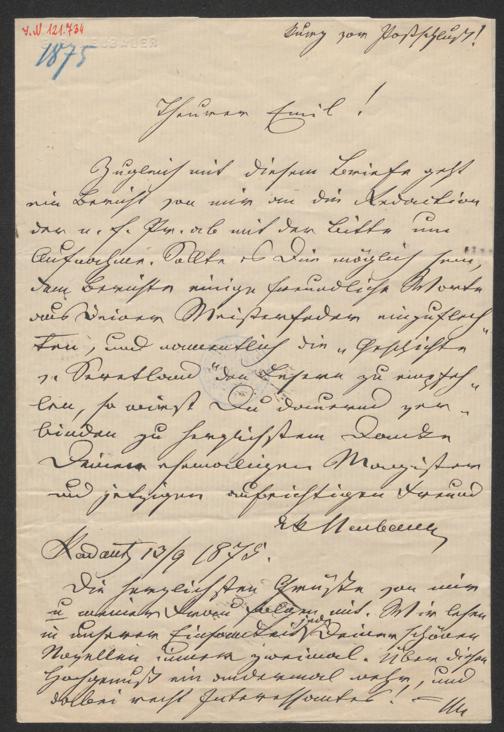 I.N. 121.734
1875
Kurz vor Postschluß!
Theurer Emil!
Zugleich mit diesem Briefe geht
ein Bericht von mir an die Redaction
der n. f. Pr. ab mit der Bitte um
Aufnahme. Sollte es Dir möglich sein,
dem Berichte einige freundliche Worte
aus Deiner Meisterfeder einzuflech
ten, und namentlich die „Geschichte
v. Seretland" den Lesern zu empfeh„
len, so wirst Du dauernd ver„
binden zu herzlichstem Danke
Deinen ehemaligen Magister
und jetzigen aufrichtigen Freund
Radautz 13/9 1875.
Die herzlichsten Grüße von mir
u meiner Frau folgen mit. Wir lesen
in unserer Einsamkeit jede Deiner schönen
Novellen immer zweimal. Über diesen
Hochgenuß ein andermal mehr, und
dabei recht Interessantes! –